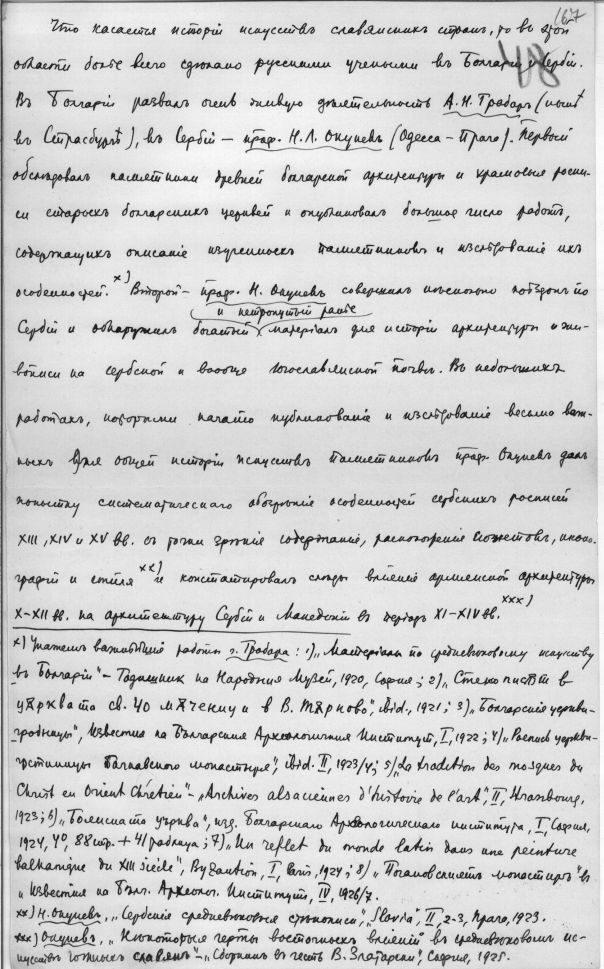 167
48
Что касается исторіи искусствъ славянскихъ странъ, то въ этой
области болѣе всего сдѣлано русскими учеными въ Болгаріи и Сербіи.
Въ Болгаріи развилъ очень живую дѣятельность А. Н. Грабаръ (нынѣ
въ Страсбургѣ), въ Сербіи – проф. Н. Л. Окуневъ (Одесса – Прага). Первый
обслѣдовалъ памятники древней болгарской архитектуры и храмовыя роспи-
си старыхъ болгарскихъ церквей и опубликовалъ большое число работъ,
содержащихъ описаніе изученныхъ памятниковъ и изслѣдованіе ихъ
особенностей. х) Второй – проф. Н. Окуневъ совершилъ нѣсколько поѣздокъ по
и нетронутый ранѣе
Сербіи и обнаружилъ богатый матеріалъ для исторіи архитектуры и жи-
вописи на сербской и вообще югославянской почвѣ. Въ небольшихъ
работахъ, которыми начато публикованіе и изслѣдованіе весьма важ-
ныхъ для общей исторіи искусствъ памятниковъ проф. Окуневъ далъ
попытку систематическаго обозрѣнія особенностей сербскихъ росписей
XIII, XIV и XV вв. съ точки зрѣнія содержанія, расположенія сюжетовъ, иконо-
графіи и стиля хх) и констатировалъ слѣды вліянія армянской архитектуры
X–XII вв. на архитектуру Сербіи и Македоніи въ періодъ XI–XIV вв. ххх)
х) Укажемъ важнѣйшія работы г. Грабара: 1) „Матеріалы по средневѣковому искусству
въ Болгаріи" – Годишник на Народния Музей, 1920, София; 2) „Стенописът в
църквата св. 40 мѫченици в В. Търново", ibid., 1921; 3) „Болгарскія церкви-
гробницы", Известия на Българския Археологически Институт, I, 1922; 4) „Роспись церкви-
гостницы Бачковскаго монастыря", ibid. II, 1923/4; 5) „La tradition des masques du
Christ en Orient Chrétien" – „Archives alsaciennes d'histoire de l'art", II, Strasbourg,
1923; 6) „Боянската църква", изд. Болгарскаго Археологическаго института, I, София,
1924, 4°, 88 стр. + 41 таблица; 7) „Un reflet du monde latin dans une peinture
balkanique du XIII siècle", Byzantion, I, Paris, 1924; 8) „Погановскиятъ монастырь" в
„Известия на Бълг. Археолог. Институт, IV, 1926/7.
хх) Н. Окуневъ, „Сербскія средневѣковыя стѣнописи", „Slavia", II, 2-3, Прага, 1923.
ххх) Окуневъ, „Нѣкоторыя черты восточныхъ вліяній въ средневѣковомъ ис-
кусствѣ южныхъ славянъ" – „Сборникъ въ честь В. Златарски", София, 1925.